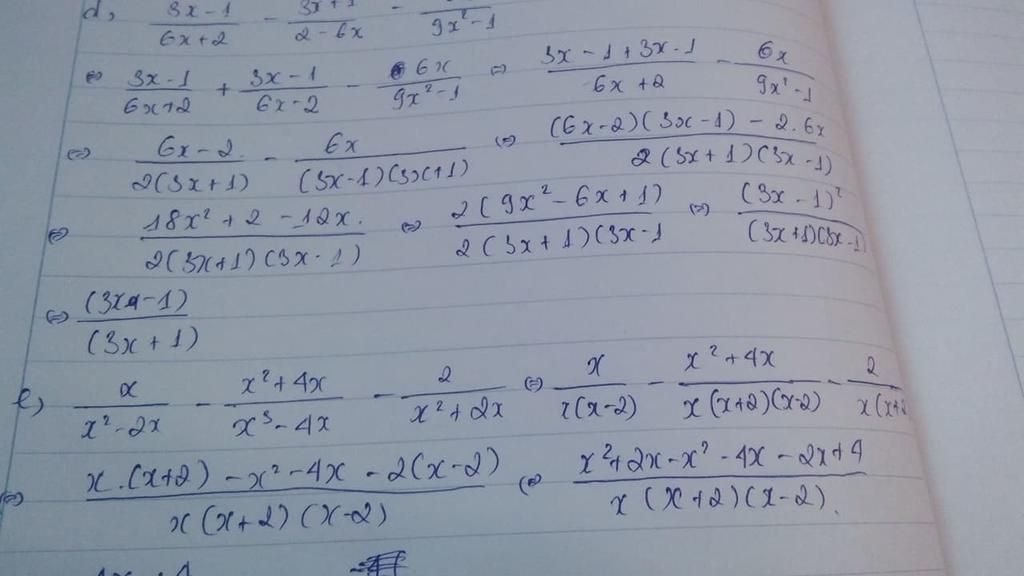 d, (3x-1)/(6x+2) - /(2-6x) - /(9x²-1)
⇔ (3x-1)/(6x+2) + (3x-1)/(6x-2) - 6x/(9x²-1) ⇔ (3x-1+3x-1)/(6x+2) - 6x/(9x²-1)
⇔ (6x-2)/(2(3x+1)) - 6x/((3x-1)(3x+1)) ⇔ ((6x-2)(3x-1) - 2.6x)/(2(3x+1)(3x-1))
⇔ (18x²+2-12x.)/(2(3x+1)(3x-1)) ⇔ (2(9x²-6x+1))/(2(3x+1)(3x-1) ⇔ (3x-1)²/((3x+1)(3x-1))
⇔ (3x-1)/(3x+1)
e, x/(x²-2x) - (x²+4x)/(x³-4x) - 2/(x²+2x) ⇔ x/(x(x-2)) - (x²+4x)/(x(x+2)(x-2)) - 2/(x(x+2
⇔ (x.(x+2) - x² - 4x - 2(x-2))/(x(x+2)(x-2)) ⇔ (x²+2x-x²-4x-2x+4)/(x(x+2)(x-2)).